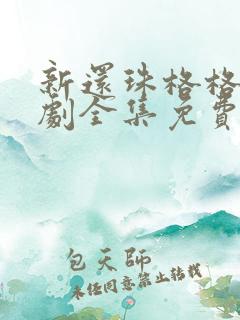 新還珠格格
劇全集免費
包天師
未經同意禁止轉載